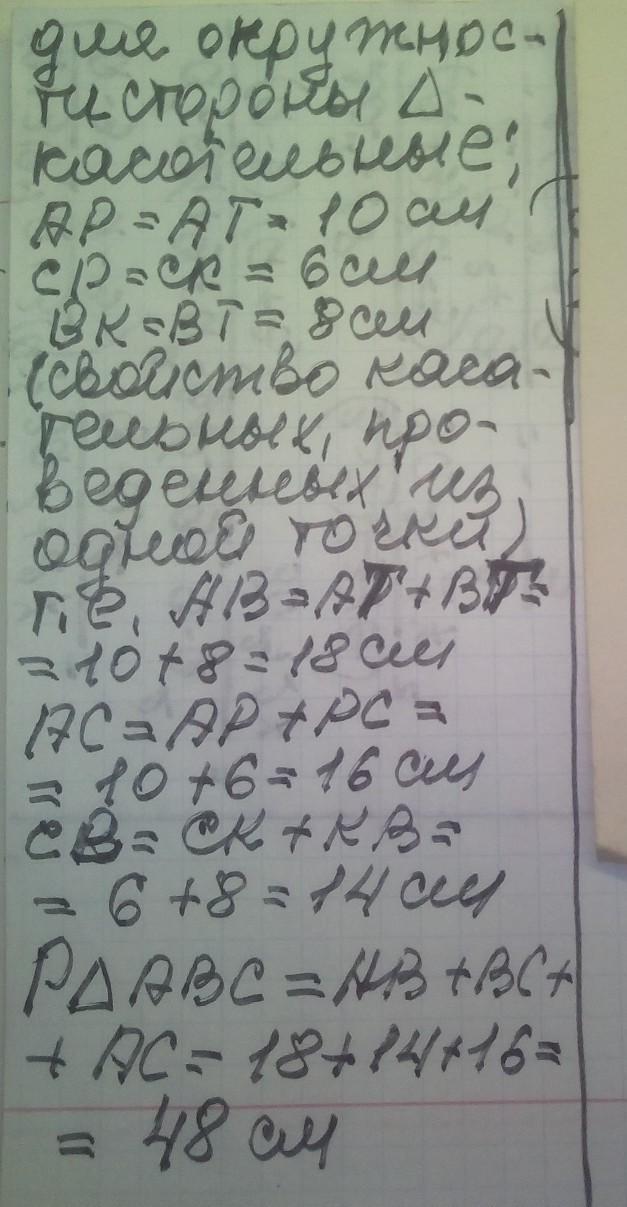 для окружнос-
ти стороны Δ-
касательные;
AP = AT = 10 см
CP = CK = 6 см
BK = BT = 8 см
(свойство каса-
тельных, про-
веденных из
одной точки)
т.е. AB = AT + BT =
= 10 + 8 = 18 см
AC = AP + PC =
= 10 + 6 = 16 см
CB = CK + KB =
= 6 + 8 = 14 см
PΔABC = AB + BC +
+ AC = 18 + 14 + 16 =
= 48 см